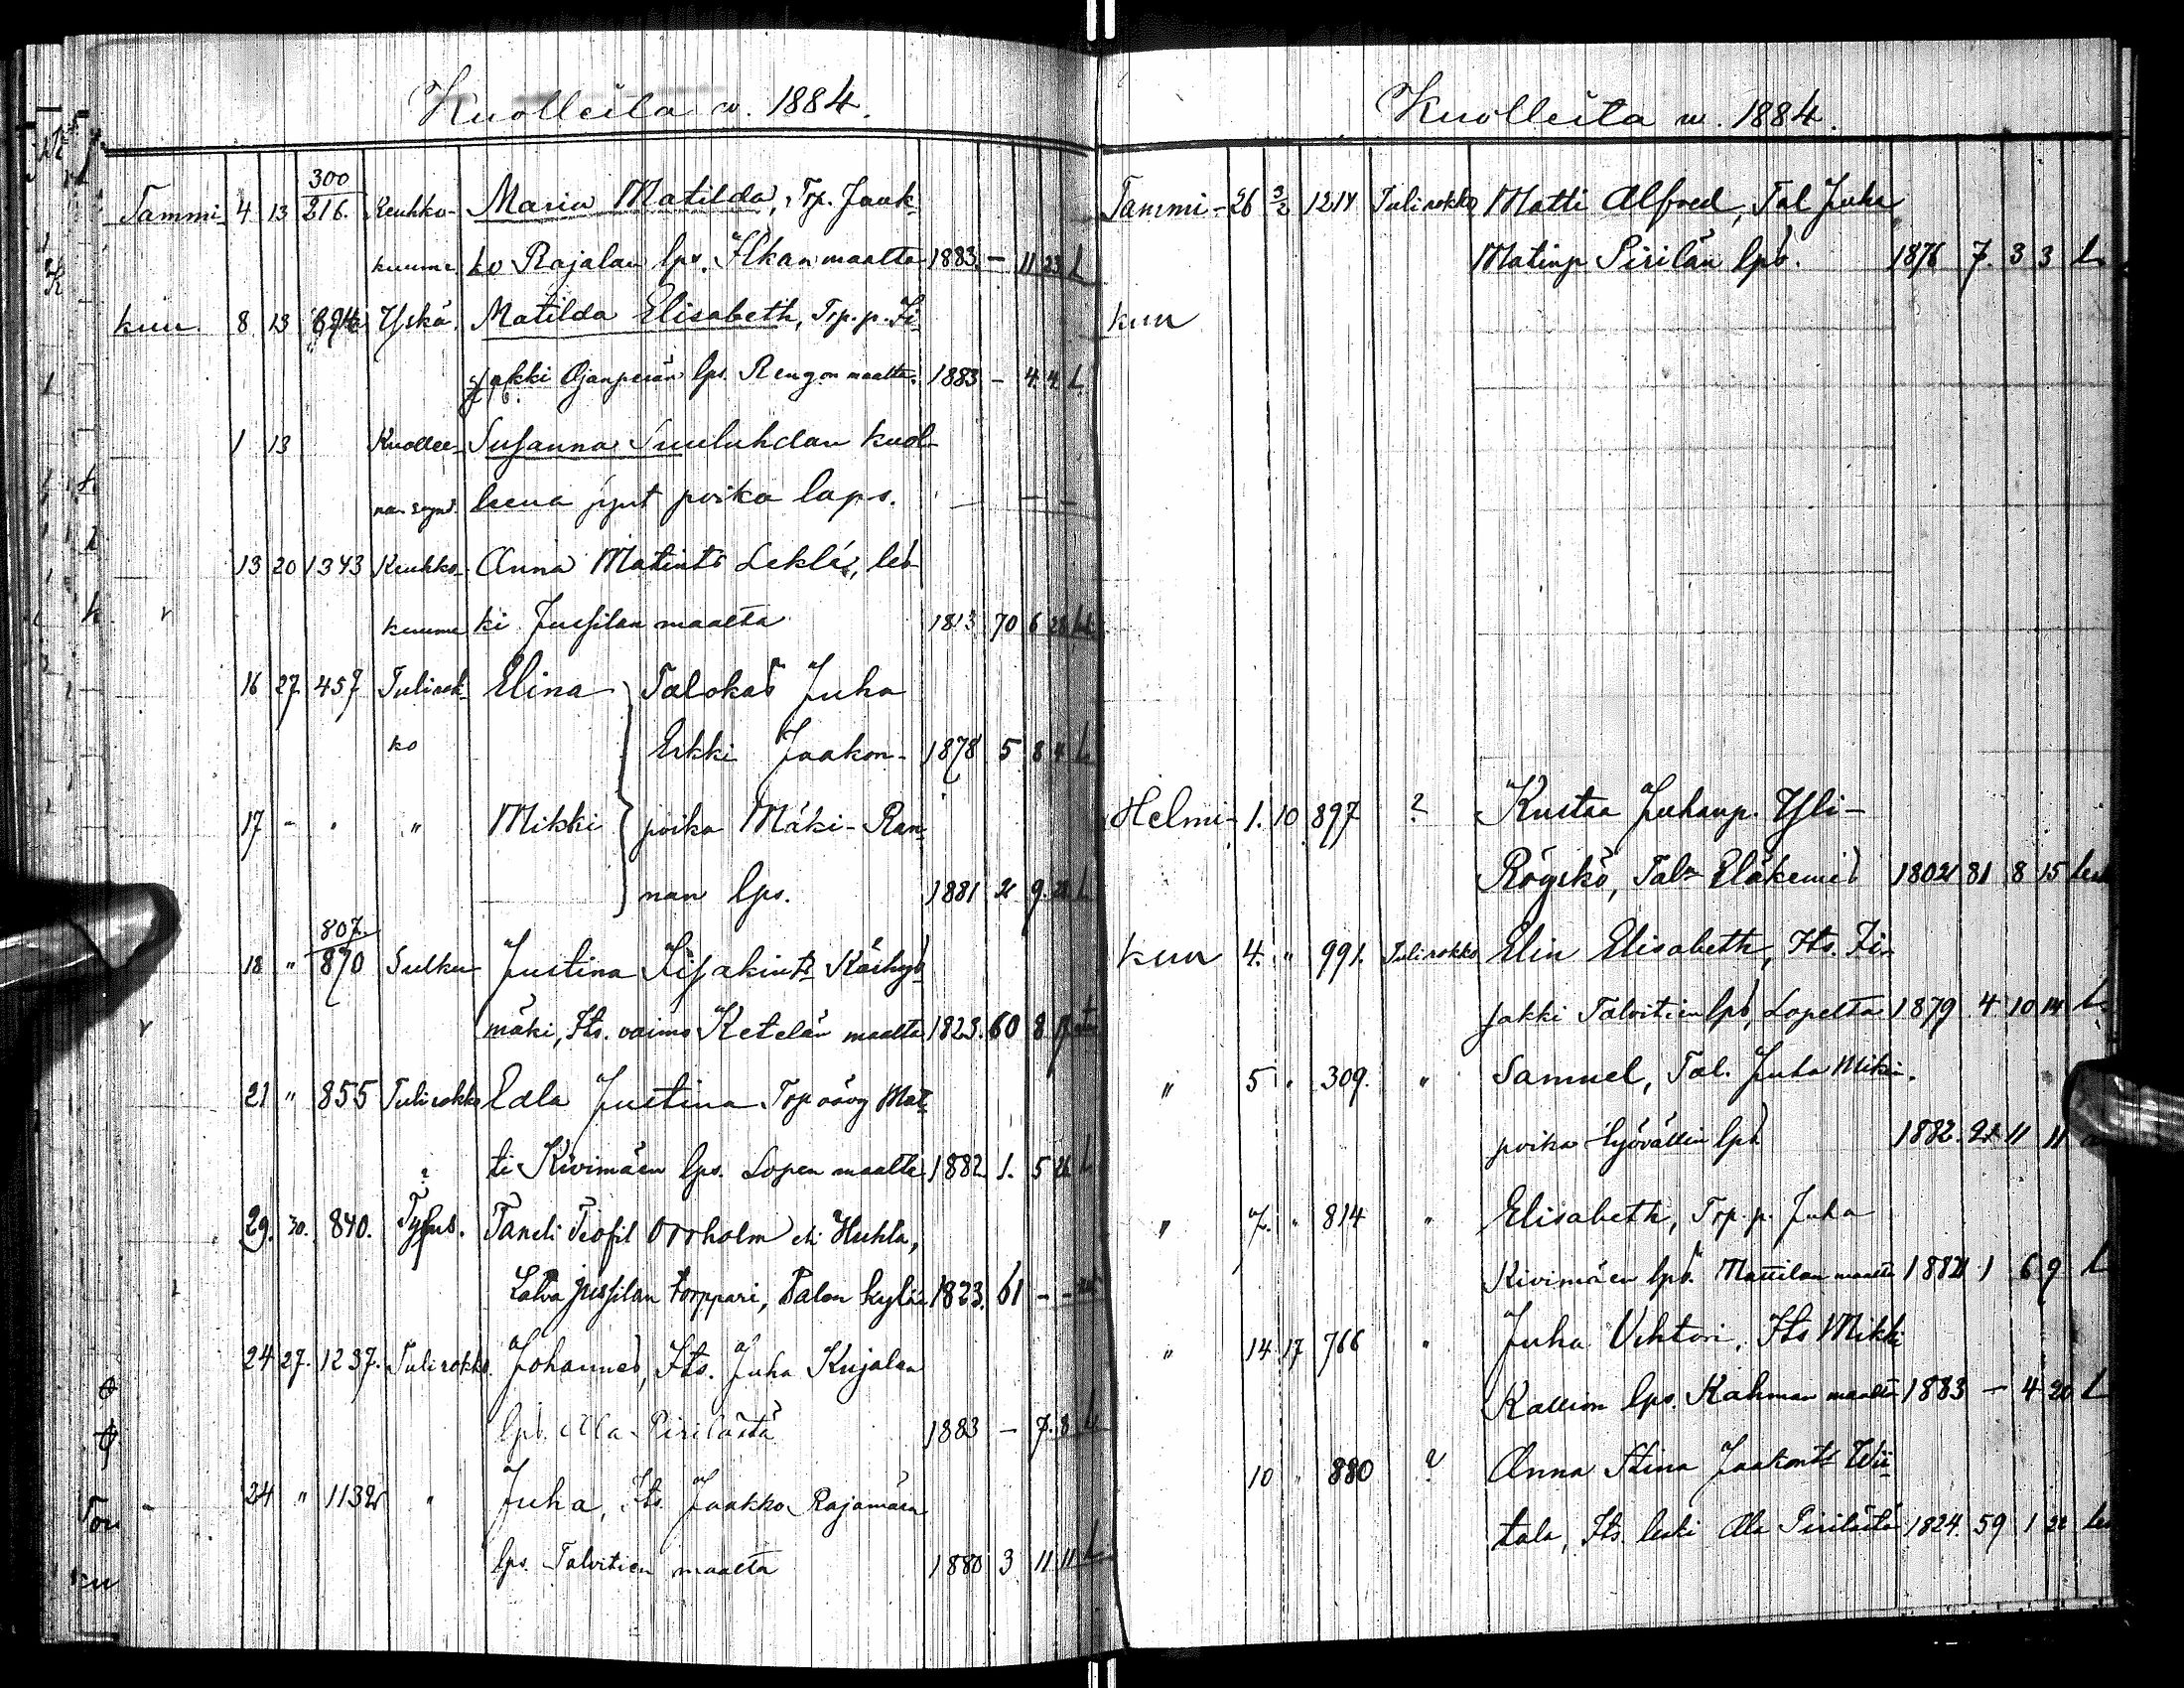 Kuolleita w. 1884.
300
Tammi- 4 13 216. Keuhko- Maria Matilda, Trp. Jaak-
kuume. ko Rajalan lps. Ilkan maalta 1883. - 11 23 L
kuu. 8 13 Yskä. Matilda Elisabeth, Trp. p. Ii-
jakki Ojanperän lps. Rengon maalta. 1883 - 4. 4. L
1 13 Kuollee- Susanna Suuluhdan kuol-
leena synt poika laps. - - -
13 20 1343 Keuhko- Anna Matintr Leklé, les-
kuume ki Jussilan maalta 1813 70 6 28
16 27 457 Tulirok- Elina Talokas Juha
ko Erkki Jaakon- 1878 5 8 4 L
17 - " " Mikki poika Mäki-Ran-
nan lps. 1881 2 9. 28 L
807.
18 " 870 Sulku Justina Iisakintr
mäki, Its. vaimo Ketelän maalta 1823. 60 8
21 " 855 Tulirokko Edla Justina Mat-
ti Kivimäen lps. Lopen maalta 1882 1. 5 26 L
?
29. 30. 840. Tyfus. Taneli Teofil Orrholm eli Huhta,
Latva Jussilan torppari, Talon kylää 1823. 61 - -
24 27. 1237. Tulirokko. Johannes, Its. Juha Kujalan
lps. Ala-Pirilästä 1883 - 7. 8 L
24 " 1132 " Juha, Its. Jaakko Rajamäen
lps. Talvitien maalta 1880 3 11 11 L
Kuolleita w. 1884.
Tammi- 26 3/2 1214 Tulirokko Matti Alfred, Tal Juha
Matinp Pirilän lps. 1876 7. 3 3 L
kuu
Helmi- 1. 10 897 ? Kustaa Juhanp. Yli-
Röyskö, Tal. Eläkemies 1802 81 8 15
kuu 4. " 991. Tulirokko Elin Elisabeth, Its. Ii-
jakki Talvitien lps, Lopelta 1879 4 10 14 L
" 5 " 309. " Samuel, Tal. Juha Mikin-
poika Työvältin lps. 1882. 11 11
" 7. " 814 " Elisabeth, Trp. p. Juha
Kivimäen lps. Mattilan maalta 1882 1 6 9 L
" 14 17 766 " Juha Vihtori, Its Mikki
Kallion lps. Kahman maalta 1883 - 4 20 L
10 " 880 ? Anna Stina Jaakontr Wii-
tala, Its. leski Ala Pirilästä 1824. 59 1 22